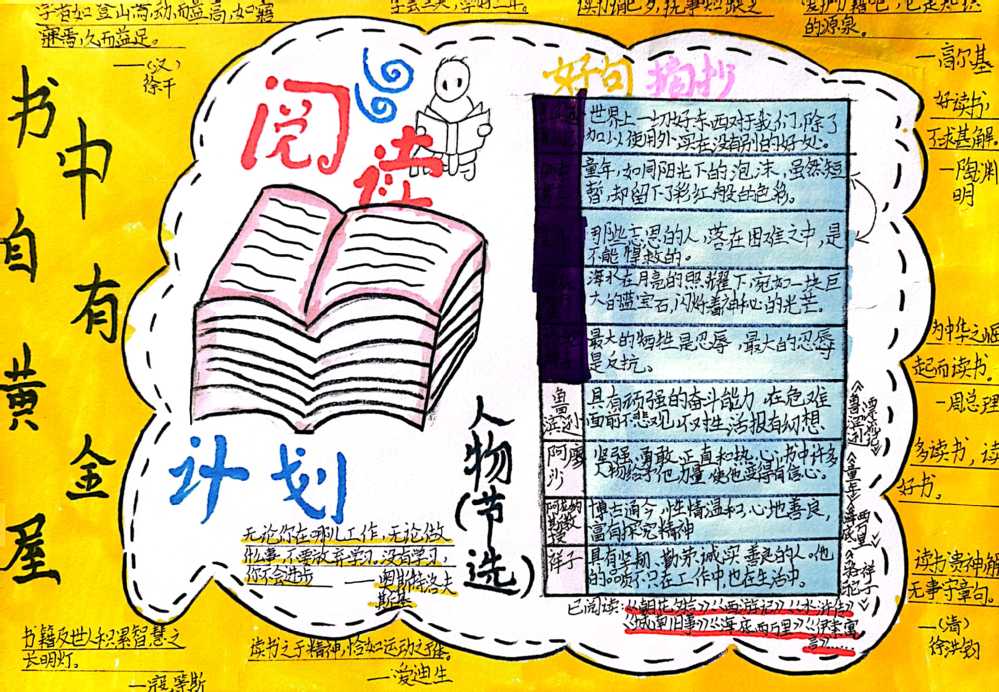 学者如登山焉,动而益高,如寤
寐焉,久而益足。
——(汉)
徐干
的源泉。
——高尔基
好读书,
不求甚解。
—陶渊
明
书中自有黄金屋
阅读
计划
好句摘抄
世界上一切好东西对于我们,除了
加以使用外,实在没有别的好处。
童年,如同阳光下的泡沫,虽然短
暂,却留下了彩虹般的色彩。
海水在月亮的照耀下,宛如一块巨
大的蓝宝石,闪烁着神秘的光芒。
最大的牺牲是忍辱,最大的忍辱
是反抗。
人物(节选)
鲁滨孙
具有顽强的奋斗能力,在危难
面前不悲观,对生活报有幻想。
阿廖沙
坚强、勇敢、正直和热心,书中许多
人物给予他力量,使他变得有信心。
博古通今,性情温和,心地善良,
富有探究精神
祥子
具有坚韧、勤劳、诚实、善良的人。他
的品质不只在工作中也在生活中。
《鲁滨孙漂流记》
《童年》
《骆驼祥子》
已阅读:《朝花夕拾》《西游记》《水浒传》
《城南旧事》《海底两万里》
无论你在哪儿工作,无论做
什么事,不要放弃学习,没有学习,
你不会进步
——奥斯特洛夫
斯基
为中华之崛
起而读书。
—周总理
多读书,读
好书。
读书贵神解,
无事守章句。
—(清)
徐洪钧
书籍及世人积累智慧之
长明灯。
—寇第斯
读书之于精神,恰如运动之于身体。
——爱迪生